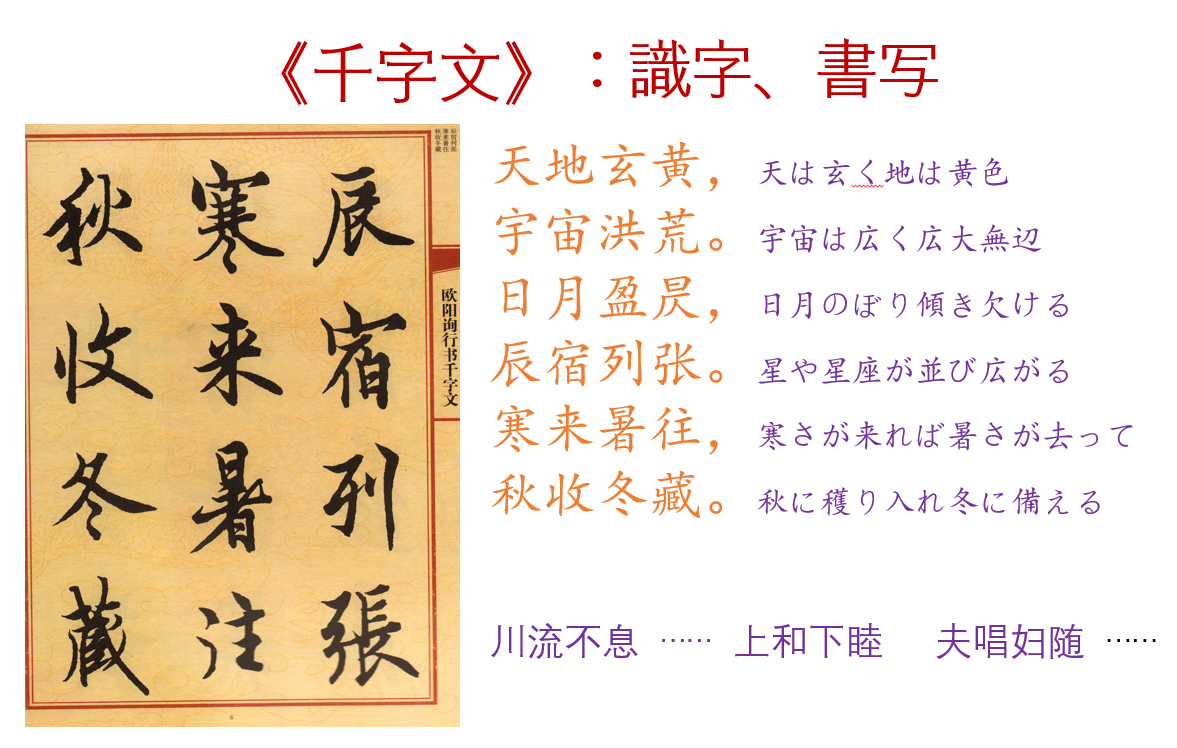 《千字文》：識字、書写
辰宿列张
寒来暑往
秋收冬藏
辰宿列張
寒来暑往
秋收冬藏
欧阳询行书千字文
6
天地玄黄，天は玄く地は黄色
宇宙洪荒。宇宙は広く広大無辺
日月盈昃，日月のぼり傾き欠ける
辰宿列张。星や星座が並び広がる
寒来暑往，寒さが来れば暑さが去って
秋收冬藏。秋に穫り入れ冬に備える
川流不息 …… 上和下睦 夫唱妇随 ……